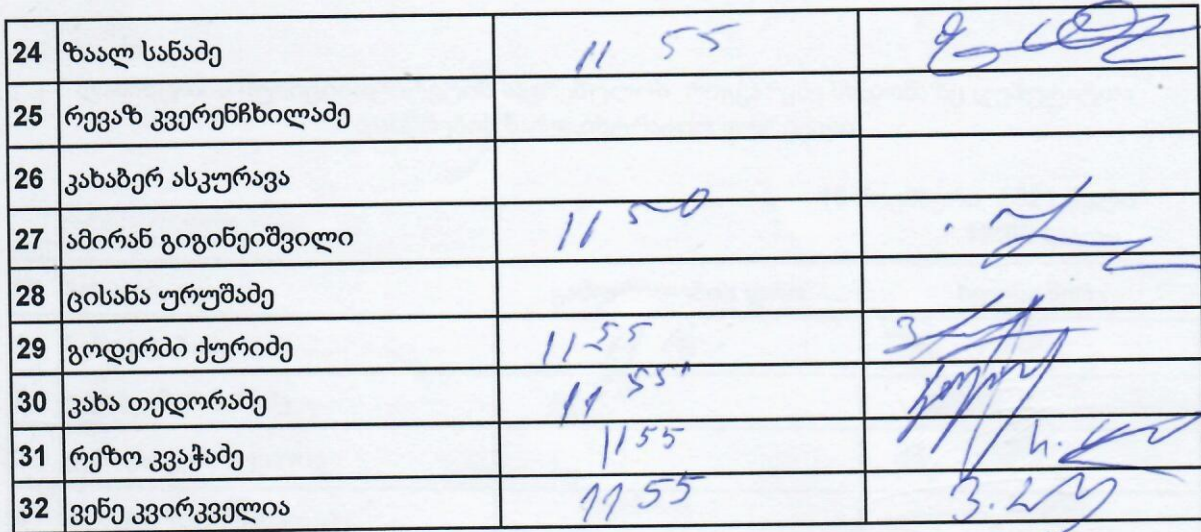 24 ზაალ სანაძე 11 55
25 რევაზ კვერენჩხილაძე
26 კახაბერ ასკურავა
27 ამირან გიგინეიშვილი 11 50
28 ცისანა ურუშაძე
29 გოდერძი ქურიძე 11 55
30 კახა თედორაძე 11 55
31 რეზო კვაჭაძე 11 55
32 ვენე კვირკველია 11 55